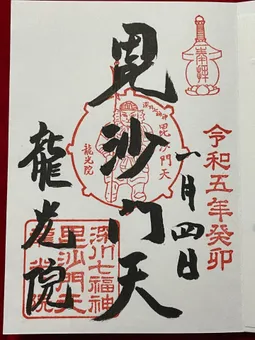 令和五年癸卯
一月四日
毘沙門天
龍光院
毘沙門天
龍光院
深川七福神
毘沙門天
龍光院